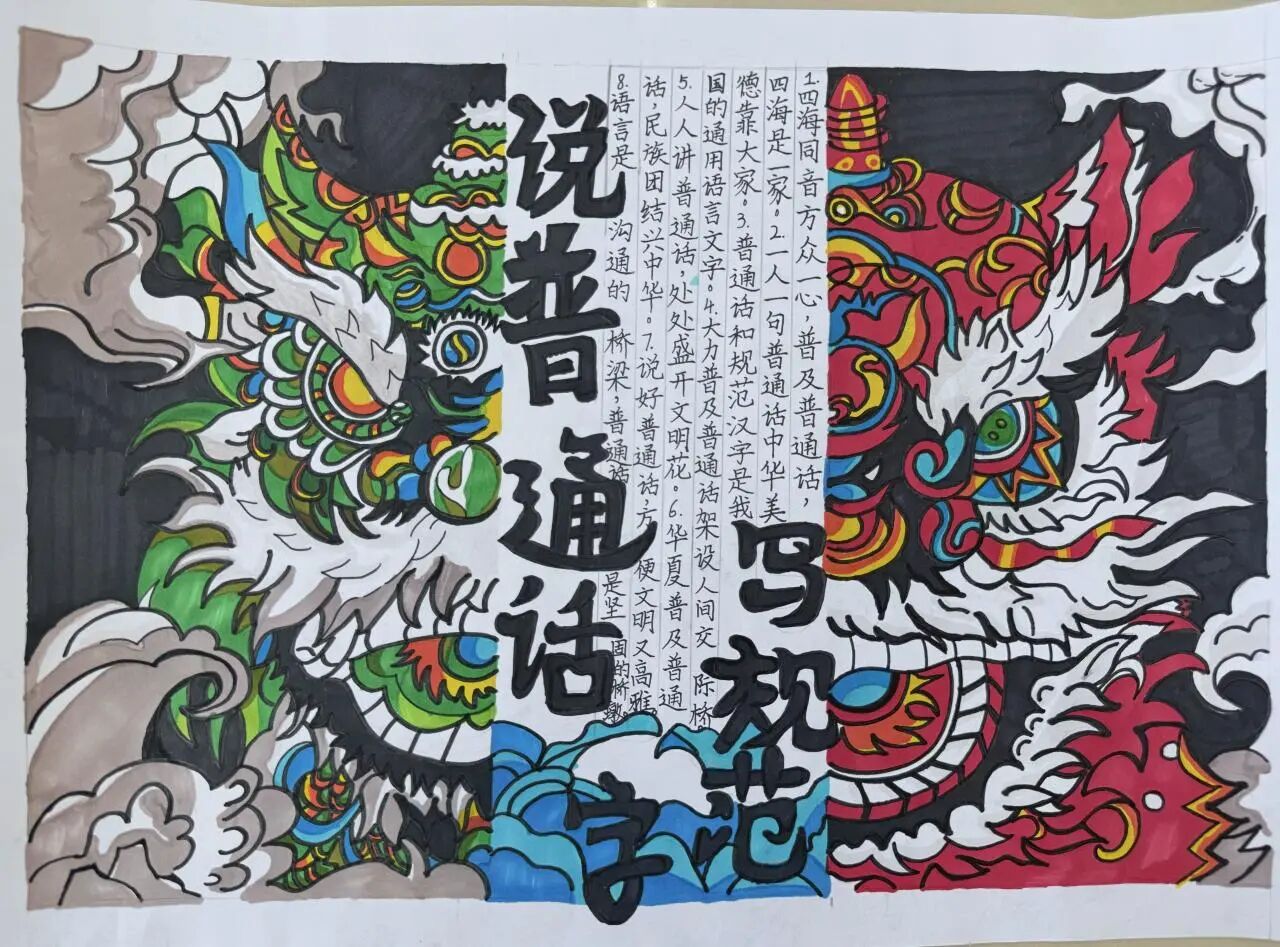 说普通话
写规范
字
1.四海同音方众一心，普及普通话，
四海是一家。2.一人一句普通话中华美
德靠大家。3.普通话和规范汉字是我
国的通用语言文字。4.大力普及普通话架设人间交际桥
5.人人讲普通话，处处盛开文明花。6.华夏普及普通
话，民族团结兴中华。7.说好普通话，方便文明又高雅。
8.语言是沟通的桥梁，普通话是坚固的桥墩。